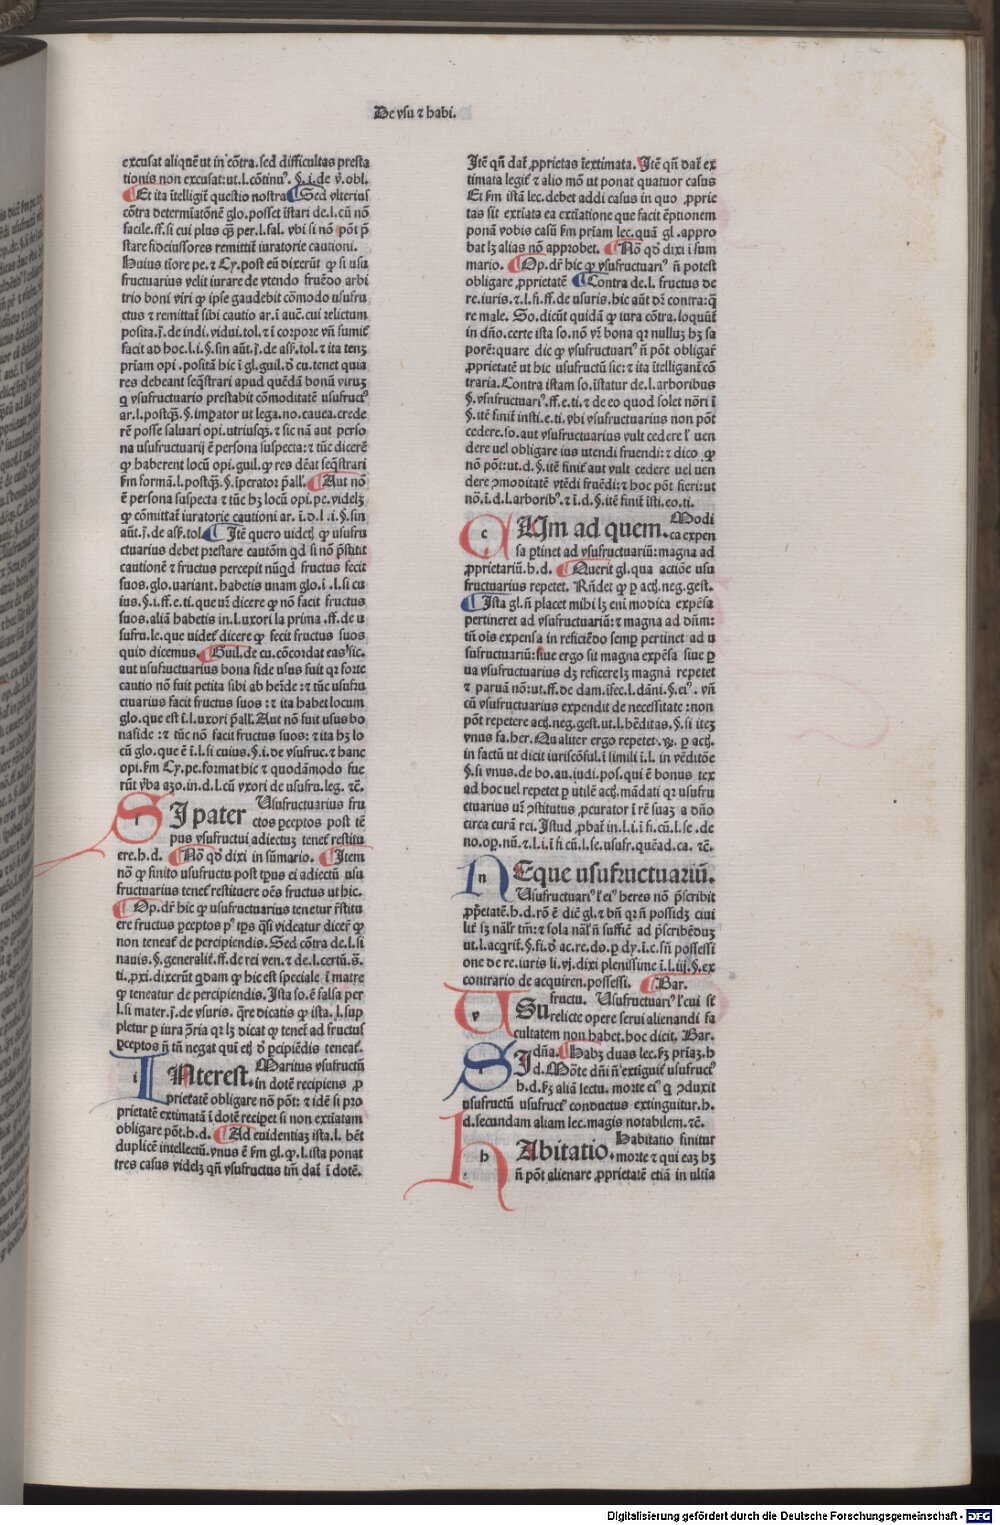 De vsu ⁊ habi.
excusat aliquē ut in cōtra. sed difficultas presta
tionis non excusat: ut. l. cōtinuꝰ. §. i. de v̄. obl.
Et ita ītelligit̄ questio nostra Sed vlterius
cōtra determīatōnē glo. posset īstari de. l. cū nō
facile. ff. si cui plus q̄ꝫ per. l. fal. vbi si nō pōt p̄
stare fideiussores remittit̄ iuratorie cautioni.
Huius tīore pe. ⁊ Cy. post eū dixerūt ꝙ si usu
fructuarius velit iurare de vtendo fruēdo arbi
trio boni viri ꝙ ipse gaudebit cōmodo usufru
ctus ⁊ remittat̄ sibi cautio ar. ī auc̄. cui relictum
posita. j̄. de indi. vidui. tol. ⁊ ī corpore vn̄ sumit̄
facit ad hoc. l. i. §. sin aūt. j̄. de ass̄. tol. ⁊ ita tenꝫ
prīam opi. positā hic ī gl. guil. ō cu. tenet quia
res debeant seq̄strari apud quēdā bonū viruꝫ
q vsufructuario prestabit cōmoditatē usufructꝰ
ar. l. postq̄ꝫ. §. imꝑator ut lega. no. cauea. crede
rē posse saluari opi. utriusqꝫ. ⁊ sic nā aut perso
na usufructuarij ē persona suspecta: ⁊ tūc dicerē
ꝙ haberent locū opi. guil. ꝙ res dēat seq̄strari
ẜm formā. l. postq̄ꝫ. §. īperator p̄all̄. Aut nō
ē persona suspecta ⁊ tūc hꝫ locū opi. pe. videlꝫ
ꝙ cōmittat̄ iuratorie cautioni ar. ī. d. l. i. §. sin
aūt. j̄. de ass̄. tol. Itē quero uidet̄ ꝙ usufru
ctuarius debet prestare cautōm qd si nō p̄stitit
cautionē ⁊ fructus percepit nūqd fructus fecit
suos. glo. uariant. habetis unam glo. ī. l. si cu
ius. §. i. ff. e. ti. que uī dicere ꝙ nō facit fructus
suos. aliā habetis in. l. uxori la prima. ff. de u
sufru. le. que uidet̄ dicere ꝙ fecit fructus suos
quid dicemus. Guil. de cu. cōcordat eas sic.
aut usufructuarius bona fide usus fuit qꝛ forte
cautio nō fuit petita sibi ab hēde: ⁊ tūc usufru
ctuarius facit fructus suos: ⁊ ita habet locum
glo. que est ī. l. uxori p̄all̄. Aut nō fuit usus bo
na fide: ⁊ tūc nō facit fructus suos: ⁊ ita hꝫ lo
cū glo. que ē ī. l. si cuius. §. i. de vsufruc. ⁊ hanc
opi. ẜm Cy. pe. format hic ⁊ quodāmodo fue
rūt v̄ba azo. in. d. l. cū vxori de usufru. leg. ⁊c̄.
SI pater Usufructuarius fru
ctos ꝑceptos post tē
pus vsufructui adiectuꝫ tenet̄ restitu
ere. h. d. Nō qd dixi in sūmario. Item
nō ꝙ finito usufructu post tꝑus ei adiectū usu
fructuarius tenet̄ restituere oēs fructus ut hic.
Op. dr̄ hic ꝙ usufructuarius tenetur r̄stitu
ere fructus ꝑceptos pꝰ tps q̄si videatur dicer̄ ꝙ
non teneat̄ de percipiendis. Sed cōtra de. l. si
nauis. §. generalit̄. ff. de rei ven. ⁊ de. l. certū. s̄.
ti. ꝓxi. dixerūt qdam ꝙ hic est speciale ī matre
ꝙ teneatur de percipiendis. Ista so. ē falsa per
l. si mater. j̄. de vsuris. q̄re dicatis ꝙ ista. l. sup
pletur ꝑ iura ꝯria qꝛ lꝫ dicat ꝙ tenet̄ ad fructus
ꝑceptos n̄ tn̄ negat qui etꝫ ō ꝑcipiēdis teneat̄.
INterest. Maritus vsufructū
in dotē recipiens ꝓ
prietatē obligare nō pōt: ⁊ idē si pro
prietatē extimatā ī dotē recipet si non extīatam
obligare pōt. h. d. Ad euidentiaꝫ ista. l. hēt
duplicē intellectū. vnus ē ẜm gl. ꝙ. l. ista ponat
tres casus videlꝫ qn̄ vsufructus tm̄ dat̄ ī dotē.
Itē qn̄ dat̄ ꝓprietas īextimata. Itē qn̄ dat̄ ex
timata legit̄ ⁊ alio mō ut ponat quatuor casus
Et ẜm istā lec. debet addi casus in quo ꝓprie
tas sit extīata ea extīatione que facit ēptionem
ponā vobis casū ẜm prīam lec. quā gl. appro
bat lꝫ alias nō approbet. Nō qd dixi ī sum
mario. Op. dr̄ hic ꝙ vsufructuariꝰ n̄ potest
obligare ꝓprietatē Contra de. l. fructus de
re. iuris. ⁊. l. fi. ff. de usuris. hic aūt dī contra: q̄
re male. So. dicūt quidā ꝙ iura cōtra. loquūt̄
in dn̄o. certe ista so. nō vr̄ bona qꝛ nulluꝫ hꝫ sa
porē: quare dic ꝙ vsufructuariꝰ n̄ pōt obligar̄
ꝓprietatē ut hic usufructū sic: ⁊ ita ītelligant̄ cō
traria. Contra istam so. īstatur de. l. arboribus
§. vsufructuariꝰ. ff. e. ti. ⁊ de eo quod solet nōri ī
§. itē finit̄ insti. e. ti. vbi vsufructuarius non pōt
cedere. so. aut vsufructuarius vult cedere l̄ uen
dere uel obligare ius utendi fruendi: ⁊ dico ꝙ
nō pōt: ut. d. §. itē finit̄ aut vult cedere uel uen
dere ꝯmoditatē vtēdi fruēdi: ⁊ hoc pōt fieri: ut
nō. ī. d. l. arboribꝰ. ⁊ ī. d. §. itē finit̄ īsti. eo. ti.
CUm ad quem. Modi
ca expen
sa ꝑtinet ad vsufructuariū: magna ad
ꝓprietariū. h. d. Querit gl. qua actiōe usu
fructuarius repetet. Rn̄det ꝙ ꝑ actꝫ. neg. gest.
Ista gl. n̄ placet mihi lꝫ eni modica expēsa
pertineret ad vsufructuariū: ⁊ magna ad dn̄m:
tn̄ oīs expensa in reficiēdo semꝑ pertinet ad u
sufructuariū: siue ergo sit magna expēsa siue ꝑ
ua vsufructuarius dꝫ reficere lꝫ magnā repetet
⁊ paruā nō: ut. ff. de dam. īfec. l. dāni. §. eiꝰ. vn̄
cū vsufructuarius expendit de necessitate: non
pōt repetere actꝫ. neg. gest. ut. l. hēditas. §. si iteꝫ
vnus fa. her. Qualiter ergo repetet. ꝶ. ꝑ actꝫ.
in factū ut dicit iuriscōsul. ī simili ī. l. in vēditōe
§. si vnus. de bo. au. iudi. pos. qui ē bonus tex
ad hoc uel repetet ꝑ utilē actꝫ. mādati qꝛ usufru
ctuarius uī ꝯstitutus ꝓcurator ī rē suaꝫ a dn̄o
circa curā rei. Istud ꝓbat̄ in. l. i. ī fi. cū. l. se. de
no. oꝑ. nū. ⁊. l. i. ī fi cū. l. se. usufr. quēad. ca. ⁊c̄.
NEque usufructuariū.
Usufructuariꝰ l̄ eiꝰ heres nō p̄scribit
ꝓp̄etatē. h. d. rō ē dic̄ gl. ⁊ bn̄ qꝛ n̄ possidꝫ ciui
lit̄ sꝫ nālr̄ tm̄: ⁊ sola nāl̄ n̄ suffic̄ ad p̄scribēduꝫ
ut. l. acqrit̄. §. fi. ō ac. re. do. ꝑ dy. ī. c. sn̄ possessi
one de re. iuris li. vj. dixi plenissime ī. l. iij. §. ex
contrario de acquiren. possessi. Bar.
USu fructu. Usufructuariꝰ l̄ cui sē
relicte opere serui alienandi fa
cultatem non habet. hoc dicit. Bar.
SI dn̄a. Habꝫ duas lec. ẜꝫ prīaꝫ. h
d. Mōte dn̄i n̄ extiguit̄ usufructꝰ
h. d. ẜꝫ aliā lectu. morte eiꝰ q ꝯduxit
usufructū usufructꝰ conductus extinguitur. h.
d. secundam aliam lec. magis notabilem. ⁊c̄.
HAbitatio. Habitatio finitur
morte ⁊ qui eaꝫ hꝫ
n̄ pōt alienare ꝓprietatē etiā in ultīa
Digitalisierung gefördert durch die Deutsche Forschungsgemeinschaft - DFG